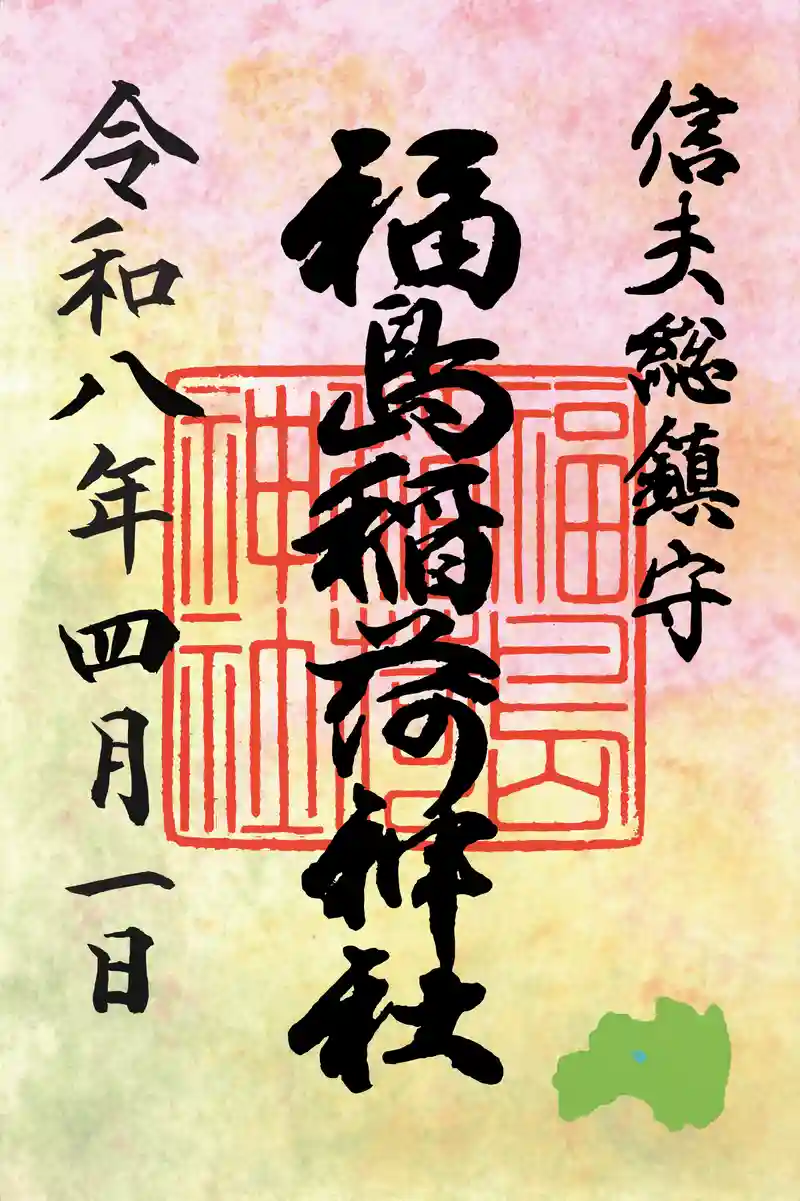 信夫総鎮守
福島稲荷神社
令和八年四月一日
福島稲荷神社